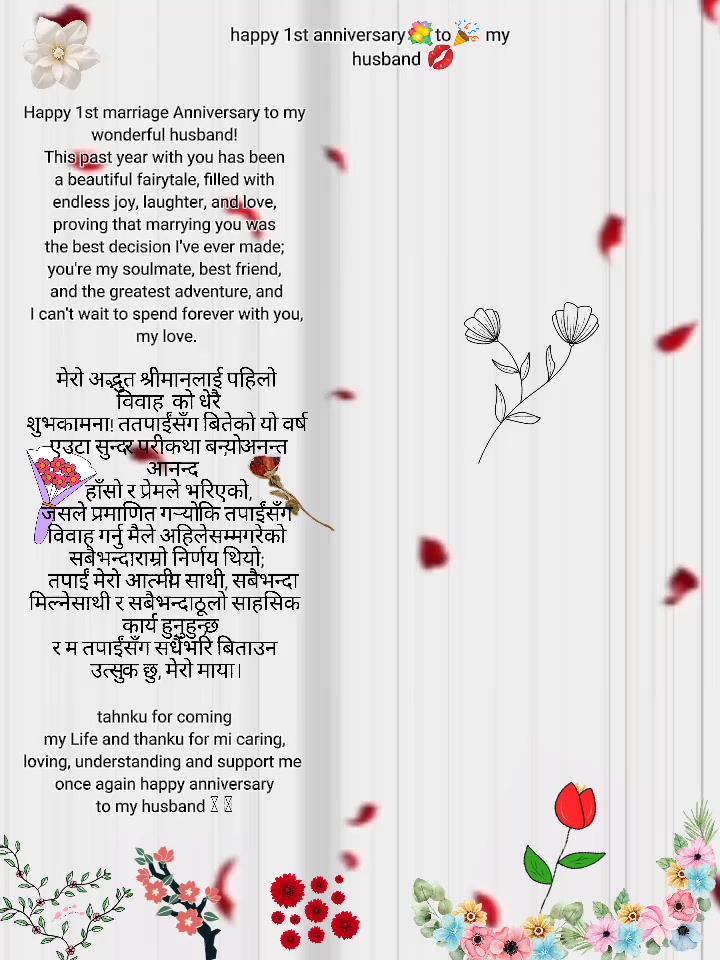 happy 1st anniversary💐to🎉 my
husband 💋
Happy 1st marriage Anniversary to my
wonderful husband!
This past year with you has been
a beautiful fairytale, filled with
endless joy, laughter, and love,
proving that marrying you was
the best decision I've ever made;
you're my soulmate, best friend,
and the greatest adventure, and
I can't wait to spend forever with you,
my love.
मेरो अद्भुत श्रीमानलाई पहिलो
विवाह को धेरै
शुभकामना! ततपाईंसँग बितेको यो वर्ष
एउटा सुन्दर परीकथा बन्योअनन्त
आनन्द
हाँसो र प्रेमले भरिएको,
जसले प्रमाणित गर्‍योकि तपाईंसँग
विवाह गर्नु मैले अहिलेसम्मगरेको
सबैभन्दाराम्रो निर्णय थियो;
तपाईं मेरो आत्मीय साथी, सबैभन्दा
मिल्नेसाथी र सबैभन्दाठूलो साहसिक
कार्य हुनुहुन्छ
र म तपाईंसँग सधैंभरि बिताउन
उत्सुक छु, मेरो माया।
tahnku for coming
my Life and thanku for mi caring,
loving, understanding and support me
once again happy anniversary
to my husband